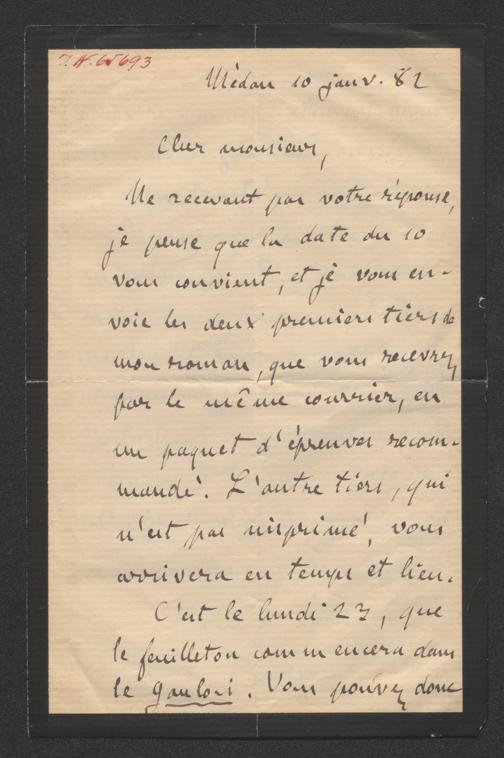 I.N. 65693
Médan 10 janv. 82
Cher monsieur,
Ne recevant pas votre réponse,
je pense que la date du 10
vous convient, et je vous en-
voie les deux premiers tiers de
mon roman, que vous recevrez
par le même courrier, en
un paquet d'épreuves recom-
mandé. L'autre tiers, qui
n'est pas imprimé, vous
arrivera en temps et lieu.
C'est le lundi 23, que
le feuilleton commencera dans
le Gaulois. Vous pouvez donc